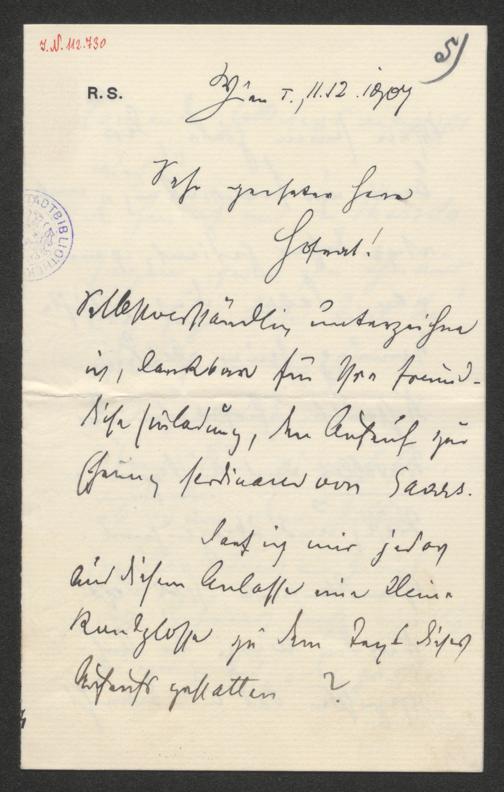 J.N. 112.730
5)
R. S.
Wien I., 11.12.1907
Sehr geehrter Herr
Hofrat!
Selbstverständlich unterzeichne
ich, dankbar für Ihre freund-
liche Einladung, den Aufruf zur
Ehrung Ferdinand von Saars.
Darf ich mir jedoch
aus diesem Anlasse eine kleine
Randglosse zu dem Text dieses
Aufrufs gestatten?
STADTBIBLIOTHEK